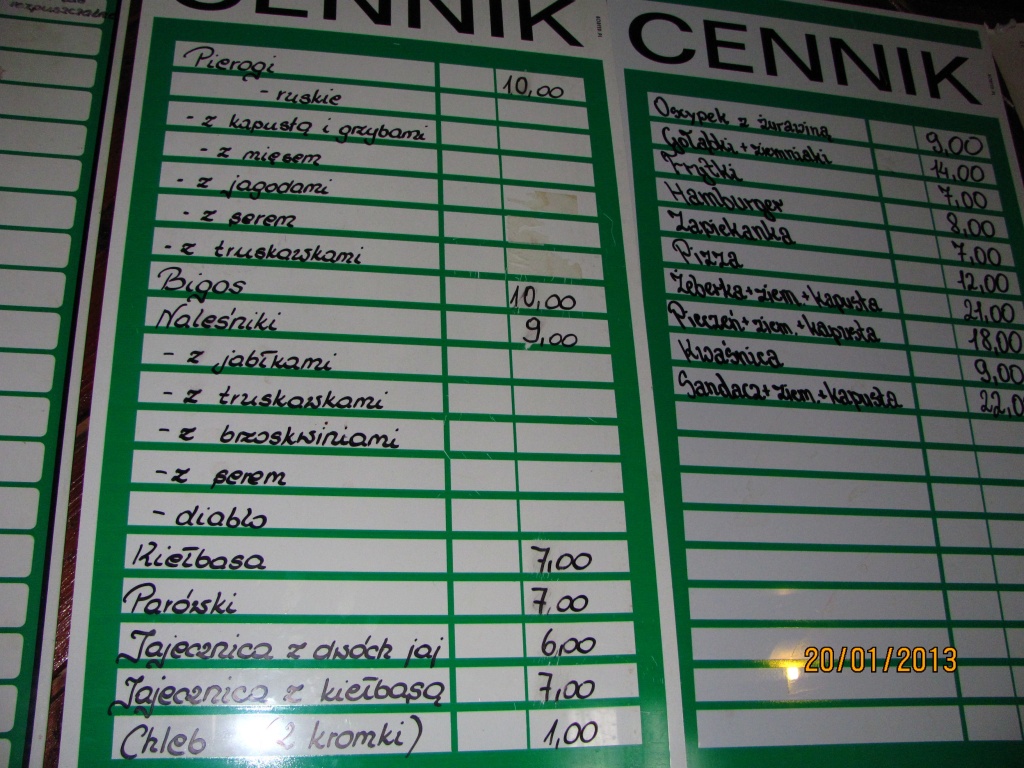 rozpuszczalna
CENNIK
Pierogi 10,00
- ruskie
- z kapustą i grzybami
- z mięsem
- z jagodami
- z serem
- z truskawkami
Bigos 10,00
Naleśniki 9,00
- z jabłkami
- z truskawkami
- z brzoskwiniami
- z serem
- diablo
Kiełbasa 7,00
Parówki 7,00
Jajecznica z dwóch jaj 6,00
Jajecznica z kiełbasą 7,00
Chleb (2 kromki) 1,00
CENNIK
Oscypek z żurawiną 9,00
Gołąbki + ziemniaki 14,00
Frytki 7,00
Hamburger 8,00
Zapiekanka 7,00
Pizza 12,00
Żeberka + ziem. + kapusta 21,00
Pieczeń + ziem. + kapusta 18,00
Kwaśnica 9,00
Sandacz + ziem. + kapusta 22,0
20/01/2013